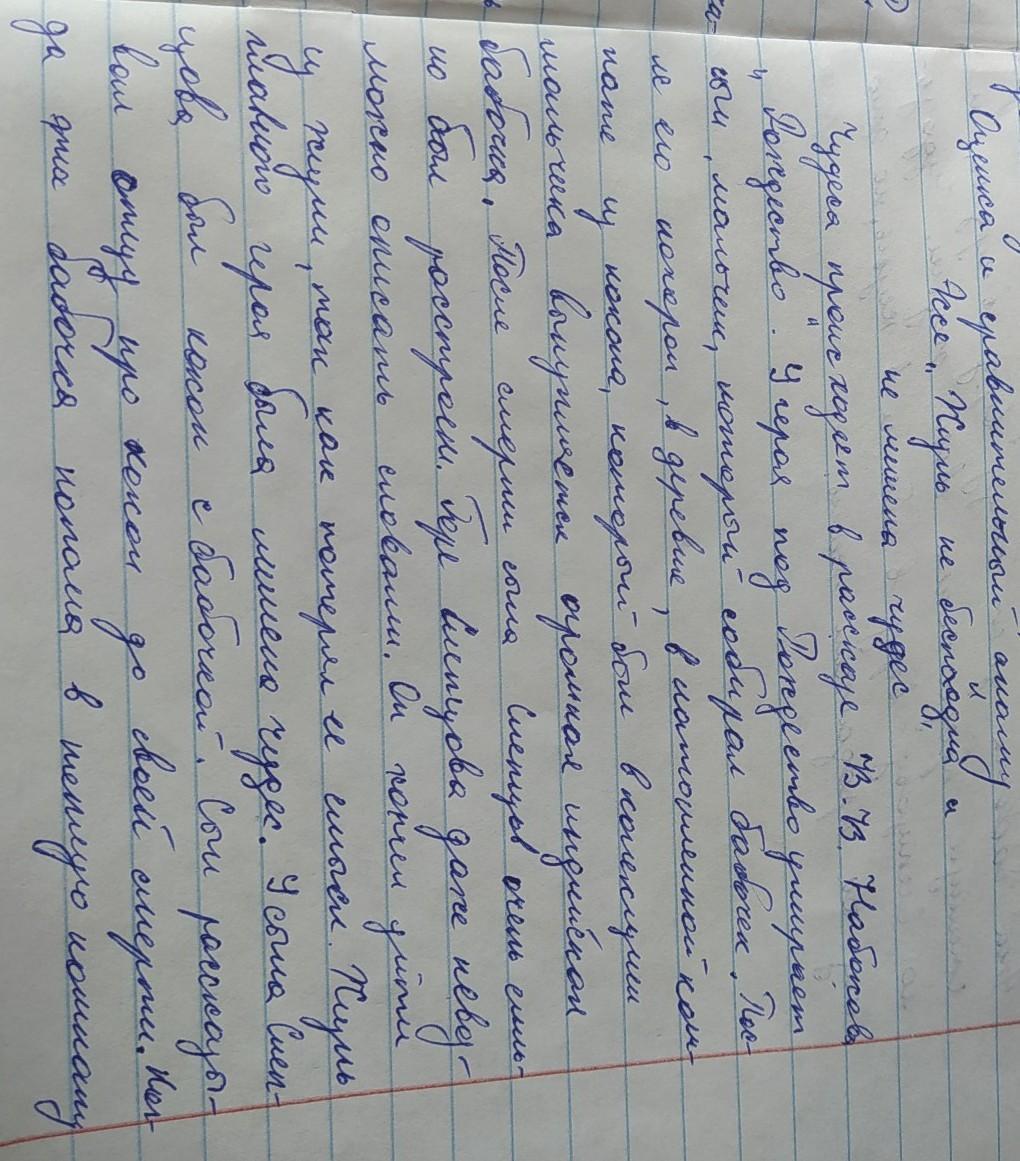 Оценка и сравнительный анализ
Эссе „Жизнь не беспощадна и
не лишена чудес
Чудеса происходят в рассказе В. В. Набокова
„Рождество". У героя под Рождество умирает
сын, мальчик, который собирал бабочек. Пос-
ле его похорон, в деревне, в натопленной ком-
нате из кокона, который был в колекции
мальчика вылупляется огромная индийская
бабочка. После смерти сына Слепцов очень силь-
но был расстроен. Горе Слепцова даже невоз-
можно описать словами. Он хочет уйти
из жизни, так как потерял ее смысл. Жизнь
главного героя была лишена чудес. У сына Слеп-
цова был кокон с бабочкой. Сын рассказы-
вал отцу про кокон до своей смерти. Ког-
да эта бабочка попала в теплую комнату